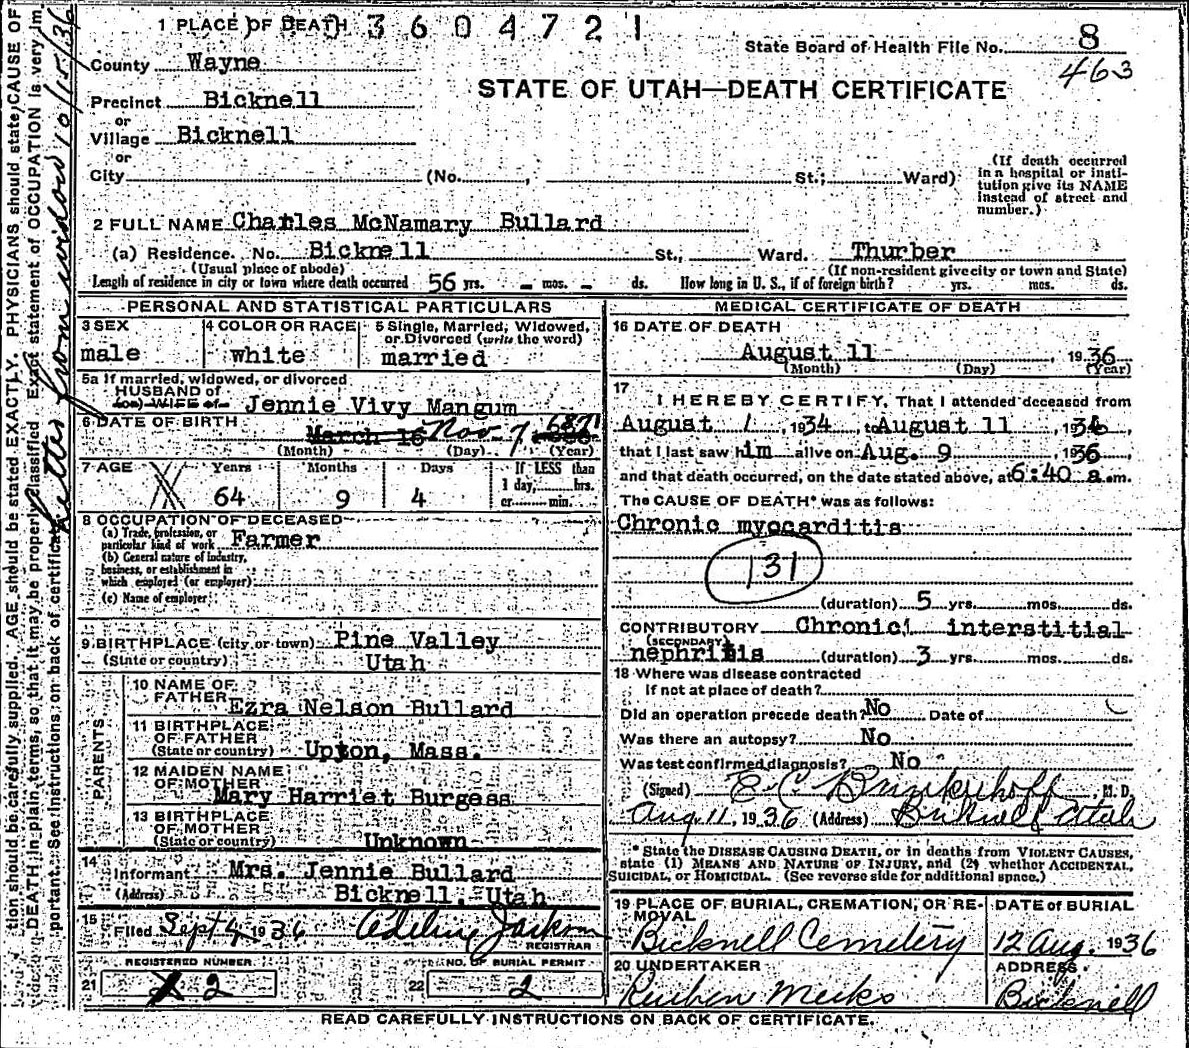 1 PLACE OF DEATH 3604721
State Board of Health File No. 8
463
County Wayne
STATE OF UTAH—DEATH CERTIFICATE
Precinct Bicknell
or
Village Bicknell
or
City (No. , St.; Ward)
(If death occurred in a hospital or institution give its NAME instead of street and number.)
2 FULL NAME Charles McNamary Bullard
(a) Residence. No. Bicknell St., Ward. Thurber
(Usual place of abode) (If non-resident give city or town and State)
Length of residence in city or town where death occurred 56 yrs. - mos. - ds. How long in U. S., if of foreign birth? yrs. mos. ds.
PERSONAL AND STATISTICAL PARTICULARS
3 SEX
male
4 COLOR OR RACE
white
5 Single, Married, Widowed, or Divorced (write the word)
married
5a If married, widowed, or divorced
HUSBAND of
(or) WIFE of Jennie Vivy Mangum
6 DATE OF BIRTH March 16 Nov. 7 1871
(Month) (Day) (Year)
7 AGE Years Months Days If LESS than
1 day, hrs.
or min.
64 9 4
8 OCCUPATION OF DECEASED
(a) Trade, profession, or
particular kind of work Farmer
(b) General nature of industry,
business, or establishment in
which employed (or employer)
(c) Name of employer
9 BIRTHPLACE (city or town) Pine Valley
(State or country) Utah
PARENTS
10 NAME OF
FATHER Ezra Nelson Bullard
11 BIRTHPLACE
OF FATHER
(State or country) Upton, Mass.
12 MAIDEN NAME
OF MOTHER
Mary Harriet Burgess
13 BIRTHPLACE
OF MOTHER
(State or country) Unknown
14
Informant Mrs. Jennie Bullard
(Address) Bicknell, Utah
15
Filed Sept 4 1936 Adeline Jackson
REGISTRAR
REGISTERED NUMBER NO. OF BURIAL PERMIT
21 2 22 2
MEDICAL CERTIFICATE OF DEATH
16 DATE OF DEATH
August 11 , 1936
(Month) (Day) (Year)
17
I HEREBY CERTIFY, That I attended deceased from
August 1, 1934 to August 11 1936
that I last saw him alive on Aug. 9 1936
and that death occurred, on the date stated above, at 6:40 a.m.
The CAUSE OF DEATH* was as follows:
Chronic myocarditis
131
(duration) 5 yrs. mos. ds.
CONTRIBUTORY Chronic interstitial
(SECONDARY)
nephritis (duration) 3 yrs. mos. ds.
18 Where was disease contracted
if not at place of death?
Did an operation precede death? No Date of
Was there an autopsy? No
Was test confirmed diagnosis? No
(Signed) E. C. Brinkerhoff, M. D.
Aug 11, 1936 (Address) Bicknell Utah
* State the DISEASE CAUSING DEATH, or in deaths from VIOLENT CAUSES,
state (1) MEANS AND NATURE OF INJURY, and (2) whether ACCIDENTAL,
SUICIDAL, or HOMICIDAL. (See reverse side for additional space.)
19 PLACE OF BURIAL, CREMATION, OR REMOVAL
Bicknell Cemetery
DATE of BURIAL
12 Aug. 1936
20 UNDERTAKER
Reuben Meeks
ADDRESS
Bicknell
READ CAREFULLY INSTRUCTIONS ON BACK OF CERTIFICATE.
tion should be carefully supplied. AGE should be stated EXACTLY. PHYSICIANS should state CAUSE OF
DEATH in plain terms, so that it may be properly classified. Exact statement of OCCUPATION is very im-
portant. See instructions on back of certificate.
Letter from widow 10/15/36